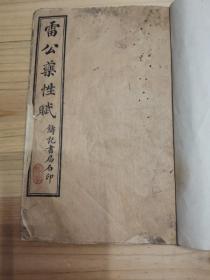 雷公藥性賦
鑄記書局石印